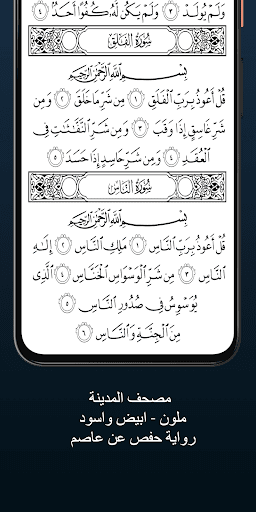 وَلَمْ يُولَدْ ٣ وَلَمْ يَكُن لَّهُۥ كُفُوًا أَحَدٌۢ ٤
سُورَةُ الفَلَقِ
بِسْمِ ٱللَّهِ ٱلرَّحْمَٰنِ ٱلرَّحِيمِ
قُلْ أَعُوذُ بِرَبِّ ٱلْفَلَقِ ١ مِن شَرِّ مَا خَلَقَ ٢ وَمِن
شَرِّ غَاسِقٍ إِذَا وَقَبَ ٣ وَمِن شَرِّ ٱلنَّفَّٰثَٰتِ فِي
ٱلْعُقَدِ ٤ وَمِن شَرِّ حَاسِدٍ إِذَا حَسَدَ ٥
سُورَةُ النَّاسِ
بِسْمِ ٱللَّهِ ٱلرَّحْمَٰنِ ٱلرَّحِيمِ
قُلْ أَعُوذُ بِرَبِّ ٱلنَّاسِ ١ مَلِكِ ٱلنَّاسِ ٢ إِلَٰهِ
ٱلنَّاسِ ٣ مِن شَرِّ ٱلْوَسْوَاسِ ٱلْخَنَّاسِ ٤ ٱلَّذِي
يُوَسْوِسُ فِي صُدُورِ ٱلنَّاسِ ٥
مِنَ ٱلْجِنَّةِ وَٱلنَّاسِ ٦
مصحف المدينة
ملون - ابيض واسود
رواية حفص عن عاصم